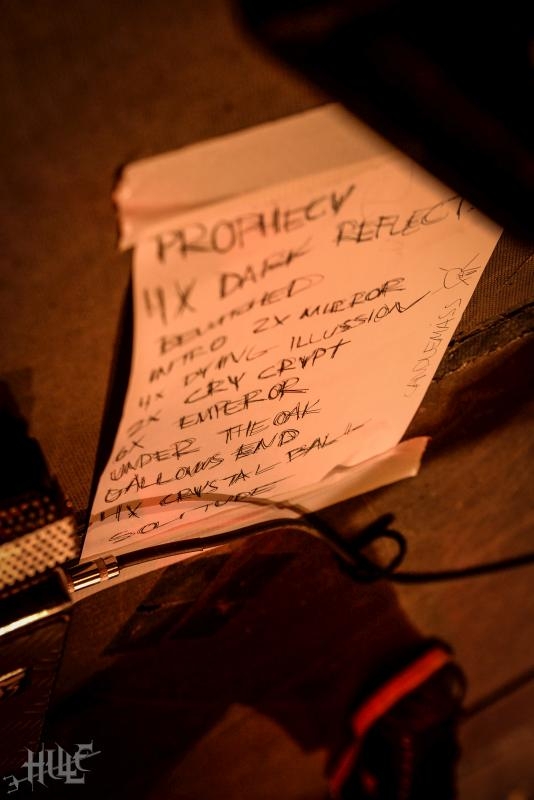 PROPHECY
4X DARK REFLECT.
BEWITCHED
INTRO 2X MIRROR
4X DYING ILLUSSION
2X CRY CRYPT
6X EMPEROR
UNDER THE OAK
GALLOWS END
4X CRYSTAL BALL
SOLITUDE
CANDLEMASS
HULE